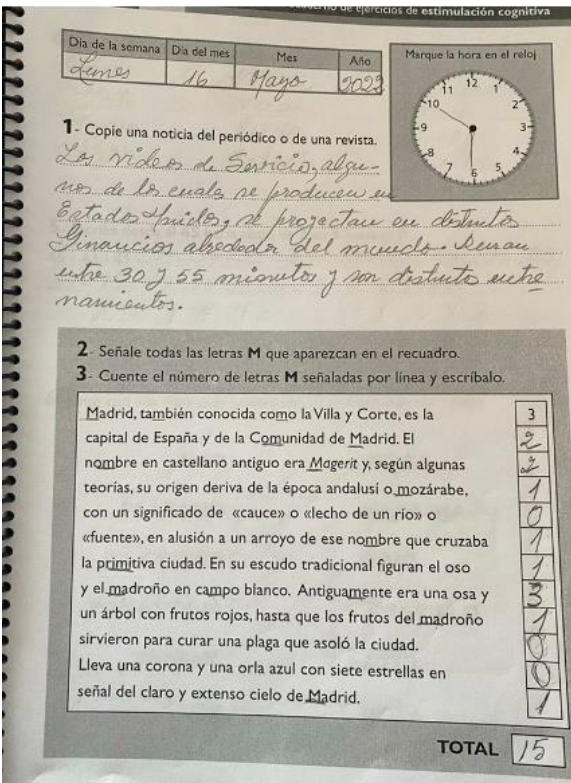 de ejercicios de estimulación cognitiva
Día de la semana Día del mes Mes Año
Lunes 16 Mayo 2022
Marque la hora en el reloj
12
11 1
10 2
9 3
8 4
7 5
6
1- Copie una noticia del periódico o de una revista.
Los videos de Servicio, algu-
nos de los cuales se producen en
Estados Unidos, se proyectan en distintos
Ginancios alrededor del mundo. Duran
entre 30 y 55 minutos y son distintos entre
namientos.
2- Señale todas las letras M que aparezcan en el recuadro.
3- Cuente el número de letras M señaladas por línea y escríbalo.
Madrid, también conocida como la Villa y Corte, es la 3
capital de España y de la Comunidad de Madrid. El 2
nombre en castellano antiguo era Magerit y, según algunas 2
teorías, su origen deriva de la época andalusí o mozárabe, 1
con un significado de «cauce» o «lecho de un río» o 0
«fuente», en alusión a un arroyo de ese nombre que cruzaba 1
la primitiva ciudad. En su escudo tradicional figuran el oso 1
y el madroño en campo blanco. Antiguamente era una osa y 3
un árbol con frutos rojos, hasta que los frutos del madroño 1
sirvieron para curar una plaga que asoló la ciudad. 0
Lleva una corona y una orla azul con siete estrellas en 0
señal del claro y extenso cielo de Madrid. 1
TOTAL 15